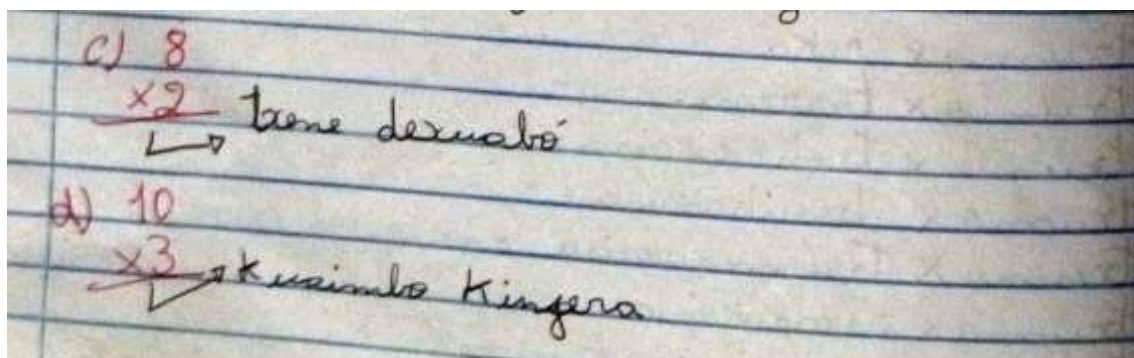 c) 8
x2
bene dexuabó
d) 10
x3
Kuximbo Kingera